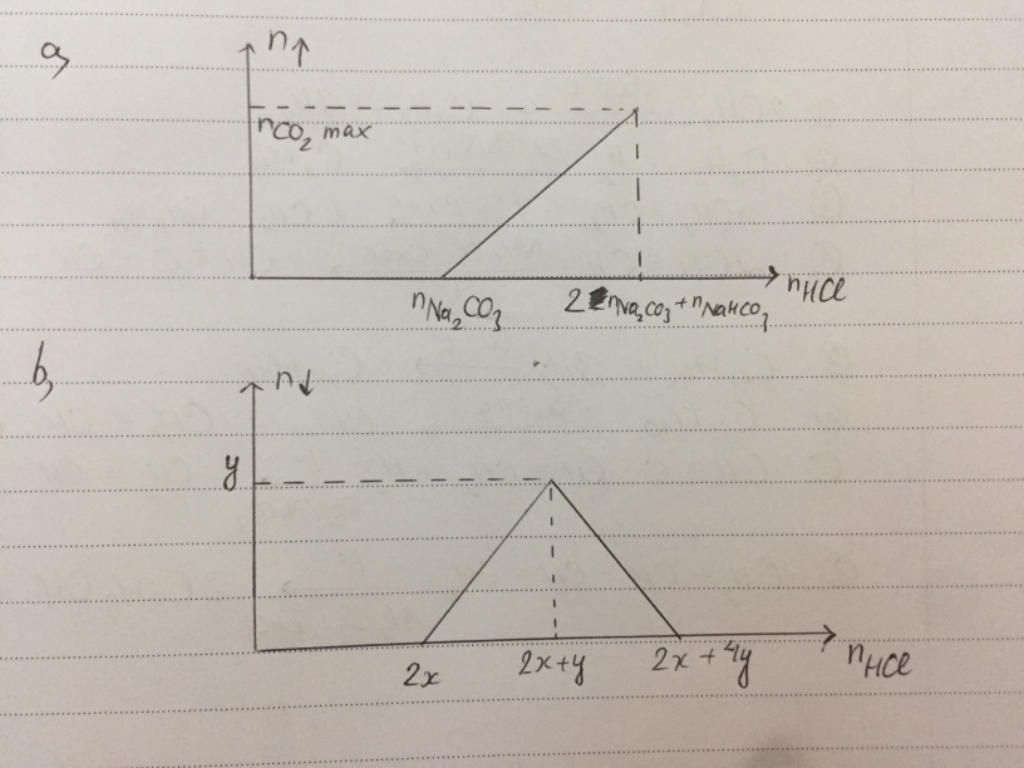 a,
n↑
nCO₂ max
nNa₂CO₃
2 nNa₂CO₃ + nNaHCO₃
nHCl
b,
n↓
y
2x
2x+y
2x + 4y
nHCl